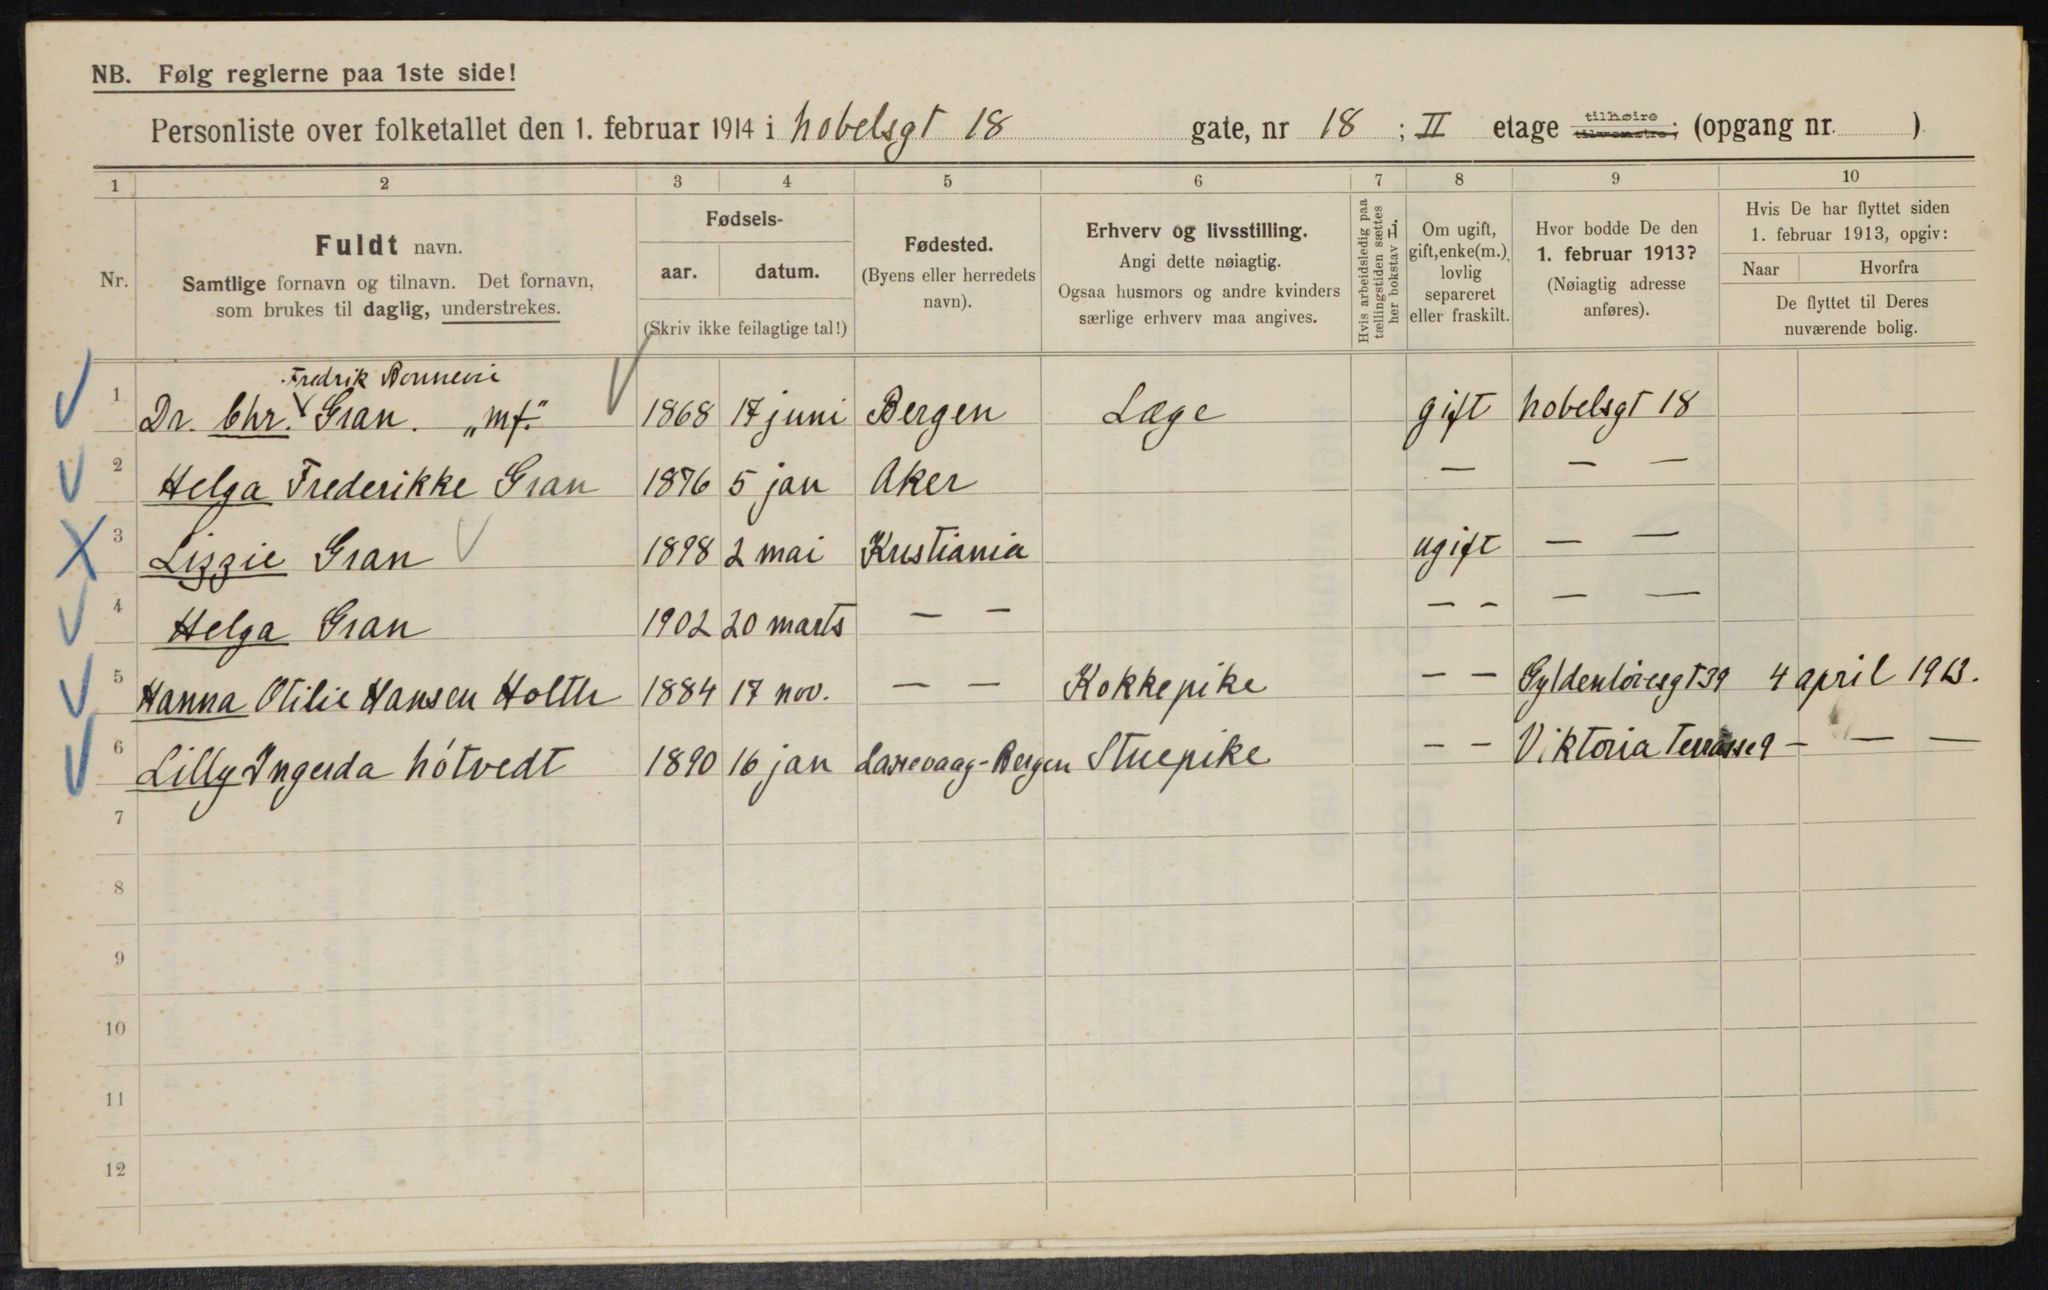 NB. Følg reglerne paa 1ste side!
Personliste over folketallet den 1. februar 1914 i Nobelsgt 18 gate, nr 18 ; II etage tilhøire tilvenstre; (opgang nr. )
1 2 3 4 5 6 7 8 9 10
Nr.
Fuldt navn.
Samtlige fornavn og tilnavn. Det fornavn,
som brukes til daglig, understrekes.
Fødsels-
aar. datum.
(Skriv ikke feilagtige tal!)
Fødested.
(Byens eller herredets
navn).
Erhverv og livsstilling.
Angi dette nøiagtig.
Ogsaa husmors og andre kvinders
særlige erhverv maa angives.
Hvis arbeidsledig paa
tællingstiden sættes
her bokstav L.
Om ugift,
gift, enke(m.),
lovlig
separeret
eller fraskilt.
Hvor bodde De den
1. februar 1913?
(Nøiagtig adresse
anføres).
Hvis De har flyttet siden
1. februar 1913, opgiv:
Naar Hvorfra
De flyttet til Deres
nuværende bolig.
Fredrik Bonnevie
1 Dr. Chr. Gran. „mf." 1868 17 juni Bergen Læge gift Nobelsgt 18 —
2 Helga Frederikke Gran 1876 5 jan Aker — — —
3 Lizzie Gran 1898 2 mai Kristiania ugift — —
4 Helga Gran 1902 20 marts — — — — — —
5 Hanna Otilie Hansen Holth 1884 17 nov. — — Kokkepike — — Gyldenløvesgt 39 4 april 1913.
6 Lilly Ingerda Nótvedt 1890 16 jan Laxevaag-Bergen Stuepike — — Viktoria Terrasse 9 — — —
7
8
9
10
11
12